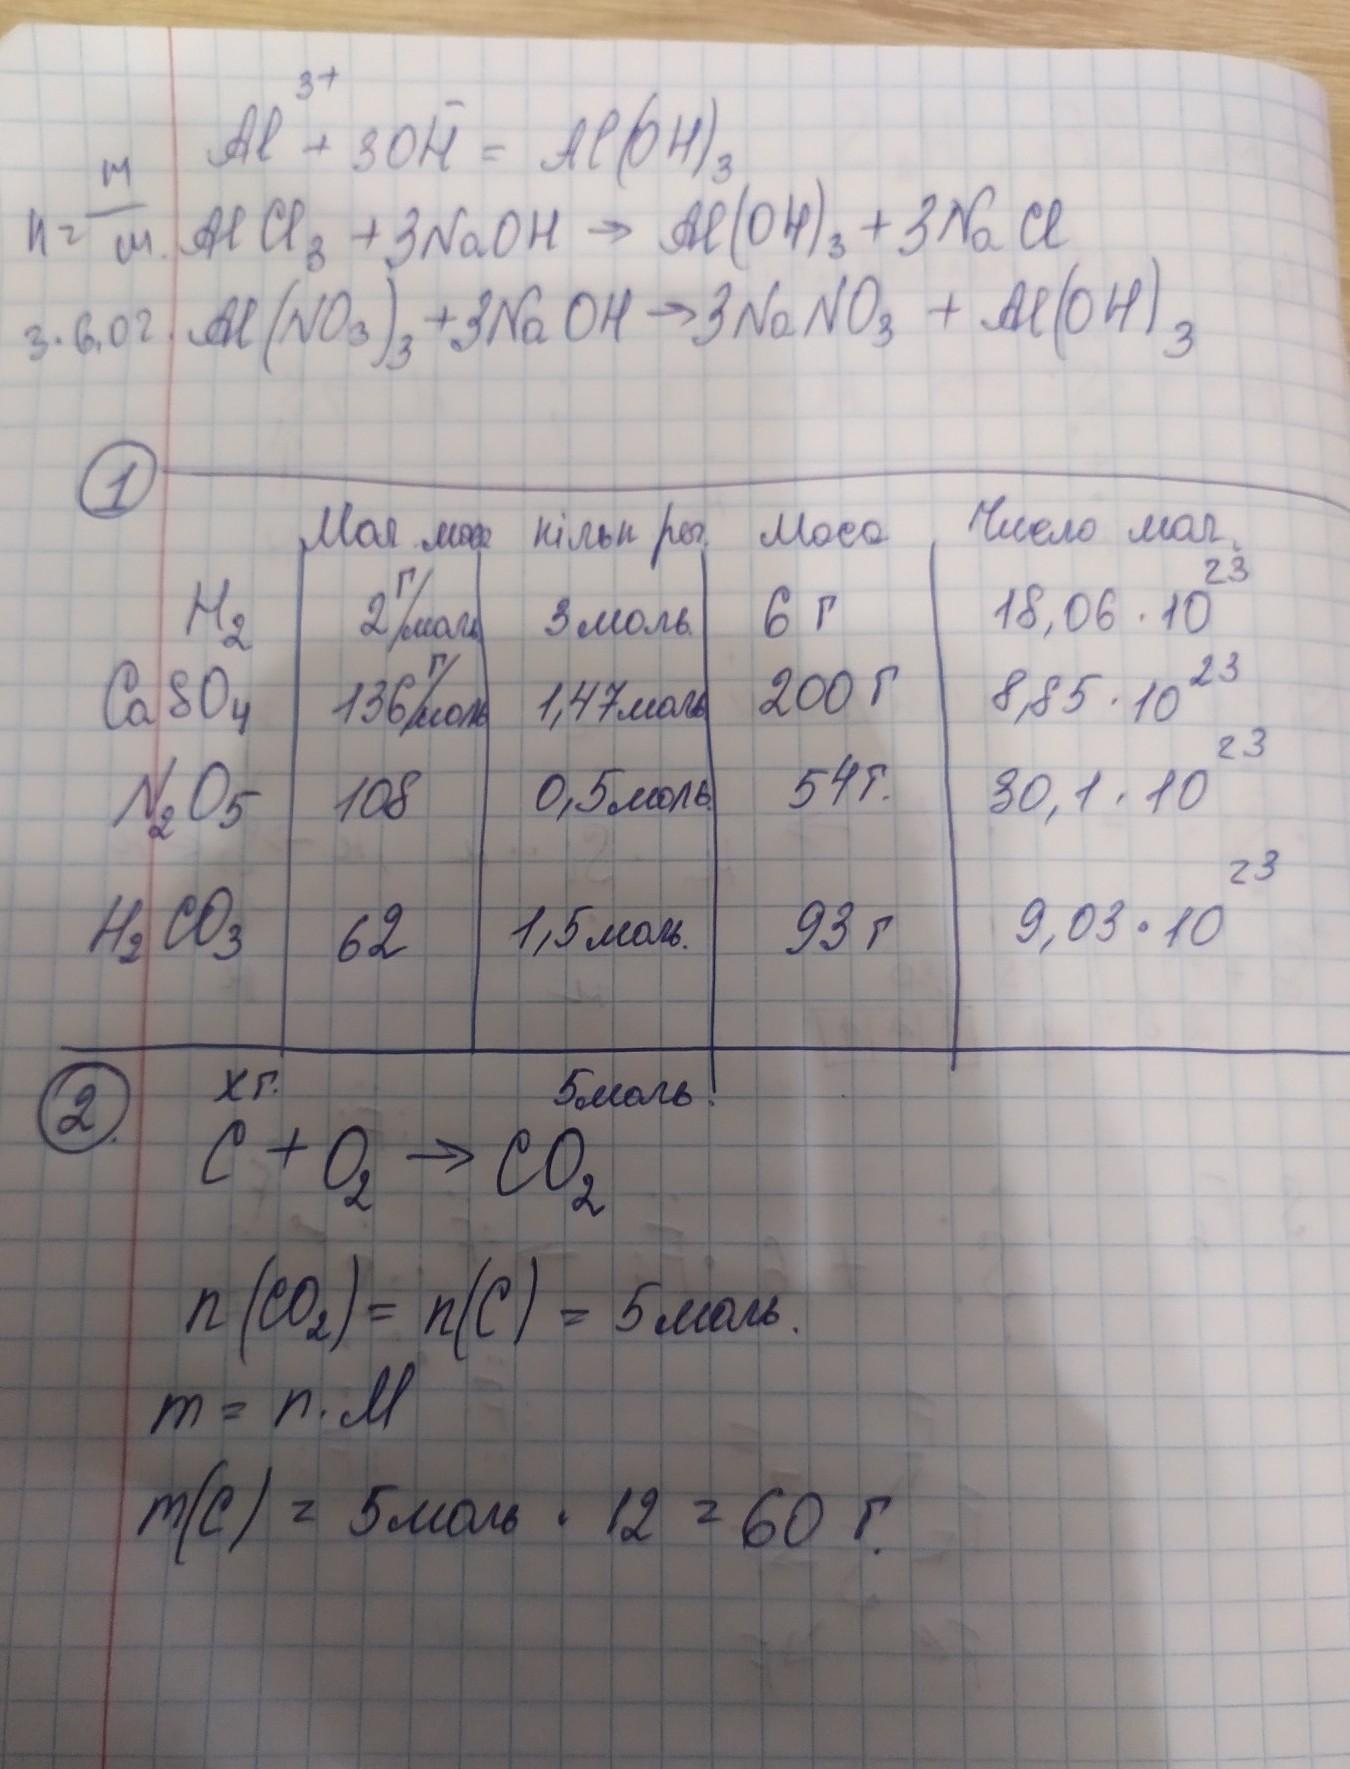 Al³⁺ + 3OH⁻ = Al(OH)₃
n = m/M. AlCl₃ + 3NaOH → Al(OH)₃ + 3NaCl
3·6,02. Al(NO₃)₃ + 3NaOH → 3NaNO₃ + Al(OH)₃
1
Мол маса кільк реч. Маса Число мол.
H₂ 2 г/моль 3 моль 6 г 18,06 · 10²³
CaSO₄ 136 г/моль 1,47 моль 200 г 8,85 · 10²³
N₂O₅ 108 0,5 моль 54 г. 30,1 · 10²³
H₂CO₃ 62 1,5 моль. 93 г 9,03 · 10²³
2. x г. 5 моль.
C + O₂ → CO₂
n(CO₂) = n(C) = 5 моль.
m = n · M
m(C) = 5 моль · 12 = 60 г.